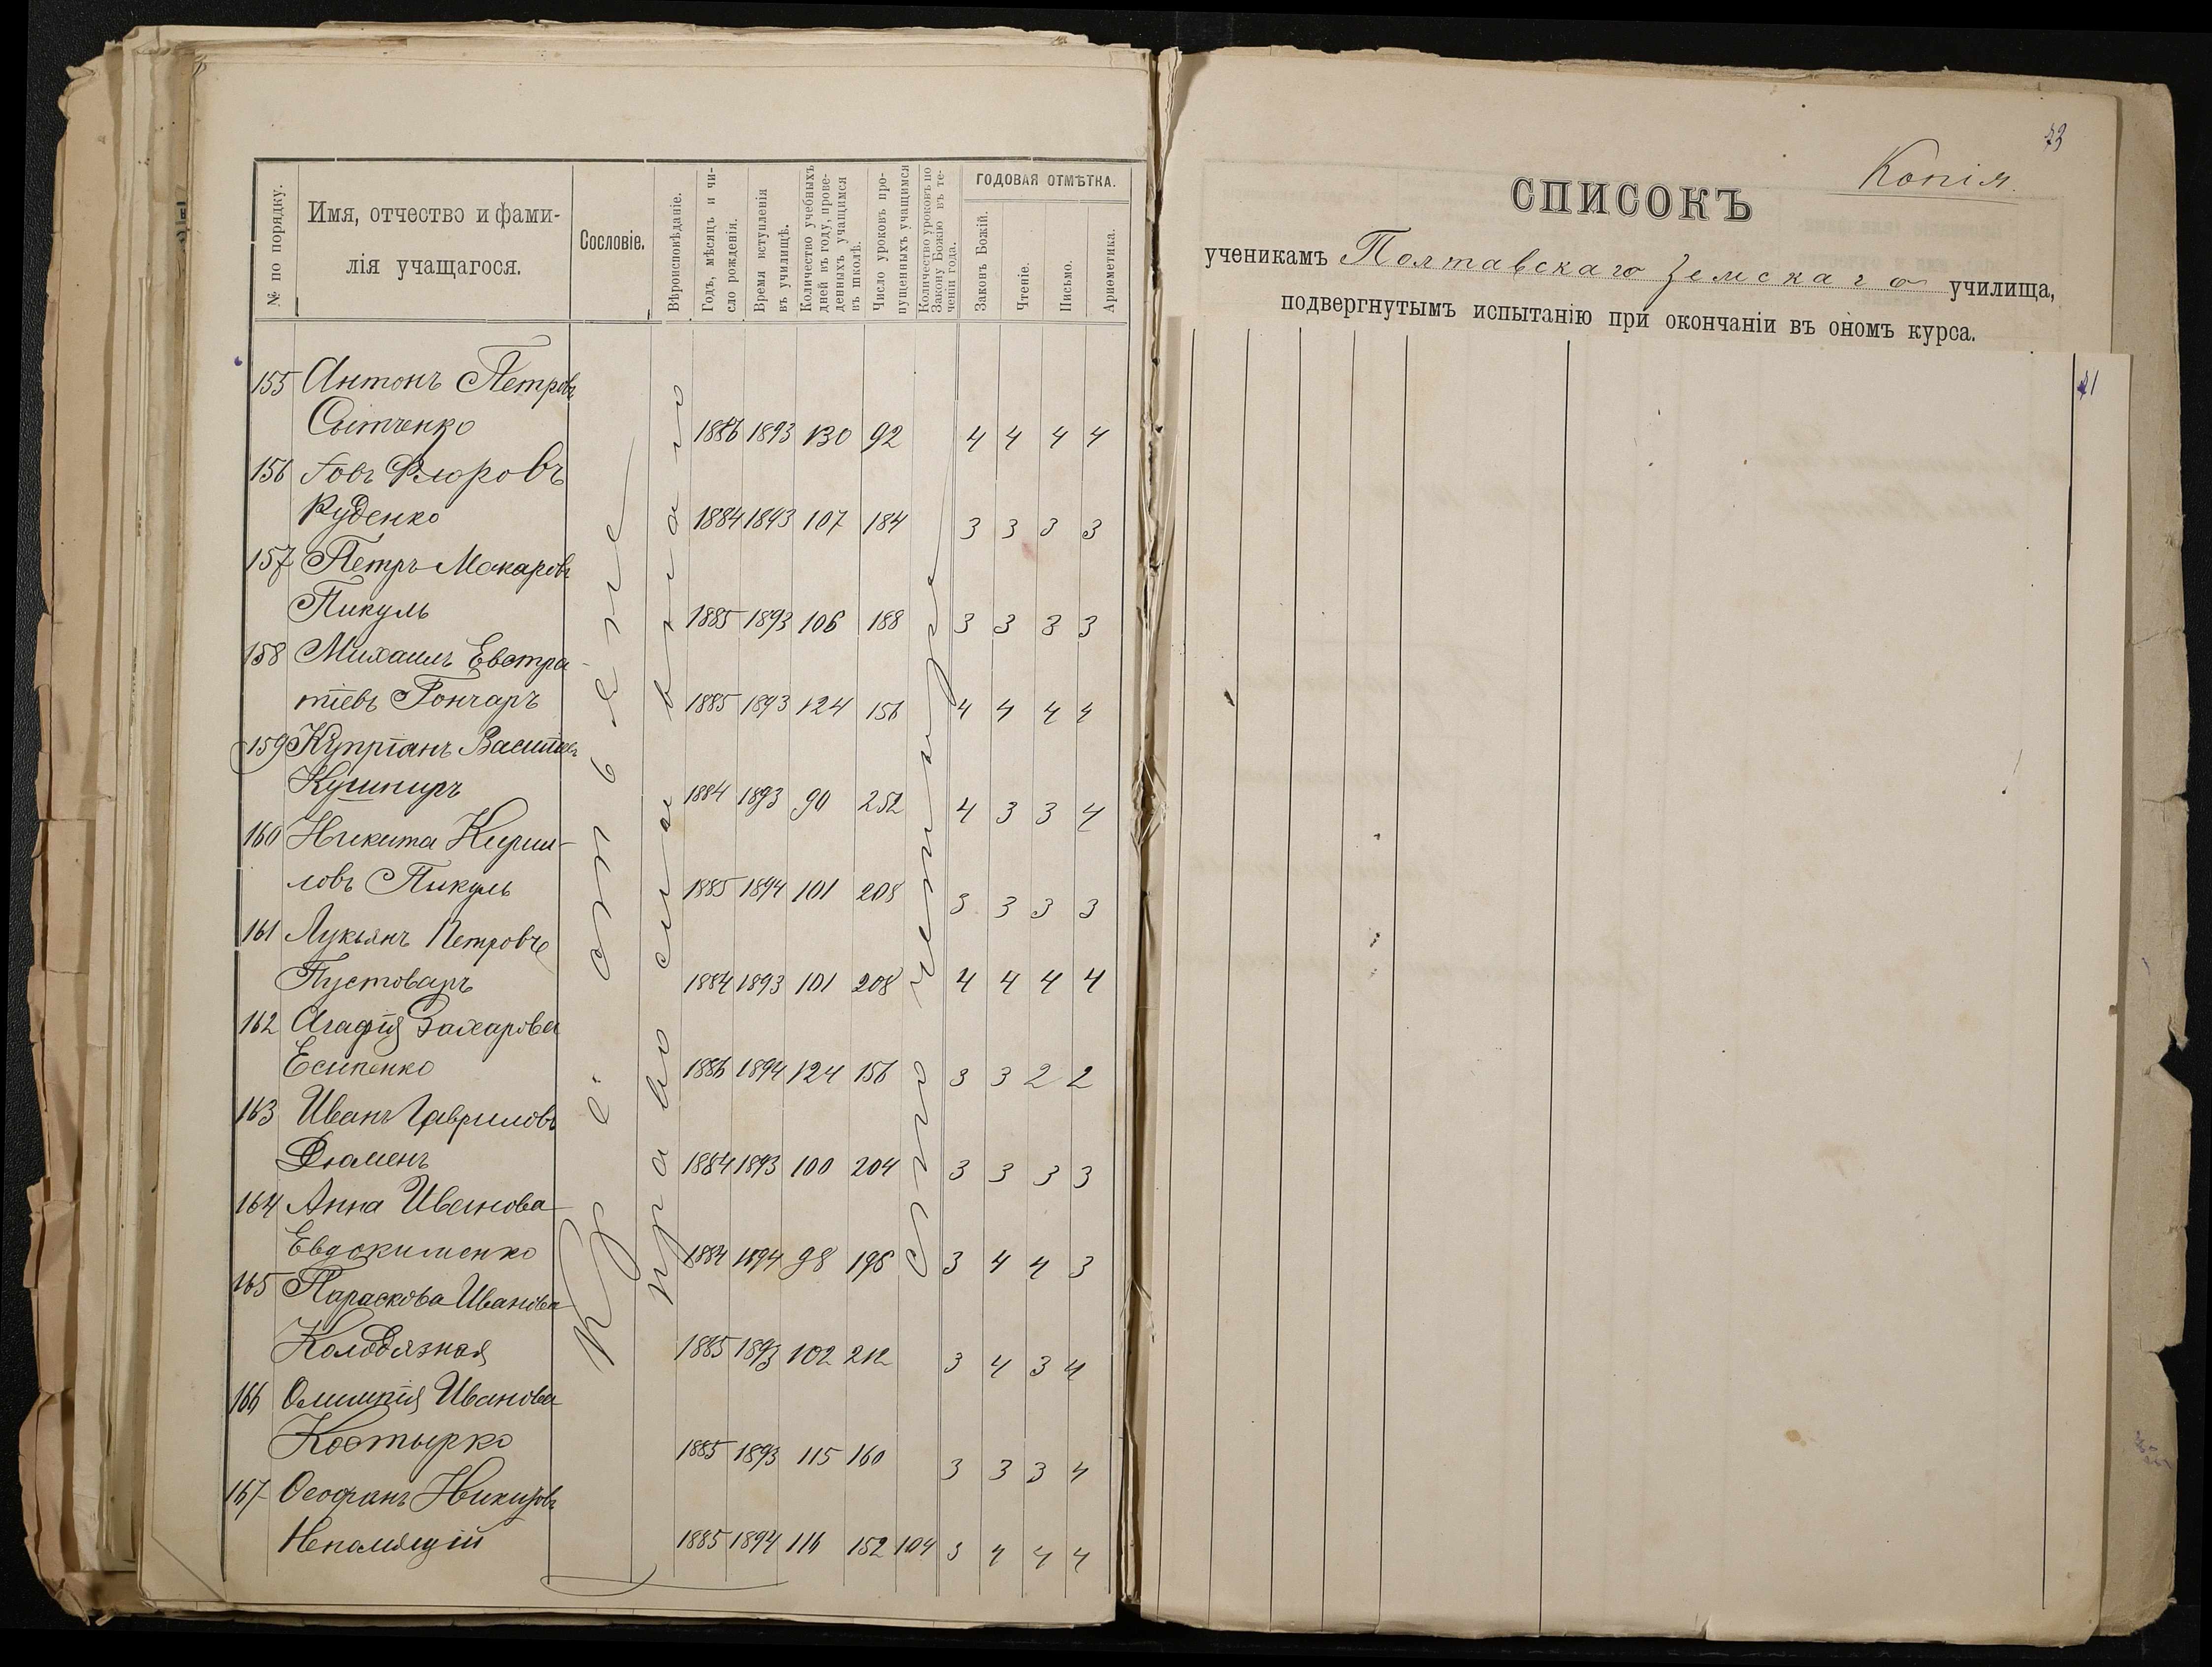 № по порядку.
Имя, отчество и фами-
лія учащагося.
Сословіе.
Вѣроисповѣданіе.
Годъ, мѣсяцъ и чи-
сло рожденія.
Время вступленія
въ училищѣ.
Количество учебныхъ
дней въ году, прове-
денныхъ учащимся
въ школѣ.
Число уроковъ про-
пущенныхъ учащимся
Количество уроковъ по
Закону Божію въ те-
ченіи года.
ГОДОВАЯ ОТМѢТКА.
Законъ Божій.
Чтеніе.
Письмо.
Ариѳметика.
155 Антонъ Петровъ
Сытченко 1886 1893 130 92 4 4 4 4
156 Іовъ
Руденко 1884 1893 107 184 3 3 3 3
157 Петръ Макаровъ
Пикуль 1885 1893 106 188 3 3 3 3
158 Михаилъ Евстра-
тіевъ Гончаръ 1885 1893 124 156 4 4 4 4
159 Купріанъ Васильевъ
Кушниръ 1884 1893 90 252 4 3 3 4
160 Никита Кирил-
ловъ Пикуль 1885 1894 101 208 3 3 3 3
161 Лукьянъ Петровъ
Пустоваръ 1884 1893 101 208 4 4 4 4
162 Агафія Захарова
Есипенко 1886 1894 124 156 3 3 2 2
163 Иванъ Гавриловъ
Дюмень 1884 1893 100 204 3 3 3 3
164 Анна Иванова
Евдокименко 1884 1894 98 196 3 4 4 3
165 Параскова Иванова
Колодязная 1885 1893 102 212 3 4 3 4
166 Олимпія Иванова
Костырко 1885 1893 115 160 3 3 3 4
167 Ѳеофанъ
1885 1894 116 152 104 3 4 4 4
православнаго
сто четыре
73
Копія.
СПИСОКЪ
ученикамъ Полтавскаго Земскаго училища,
подвергнутымъ испытанію при окончаніи въ ономъ курса.